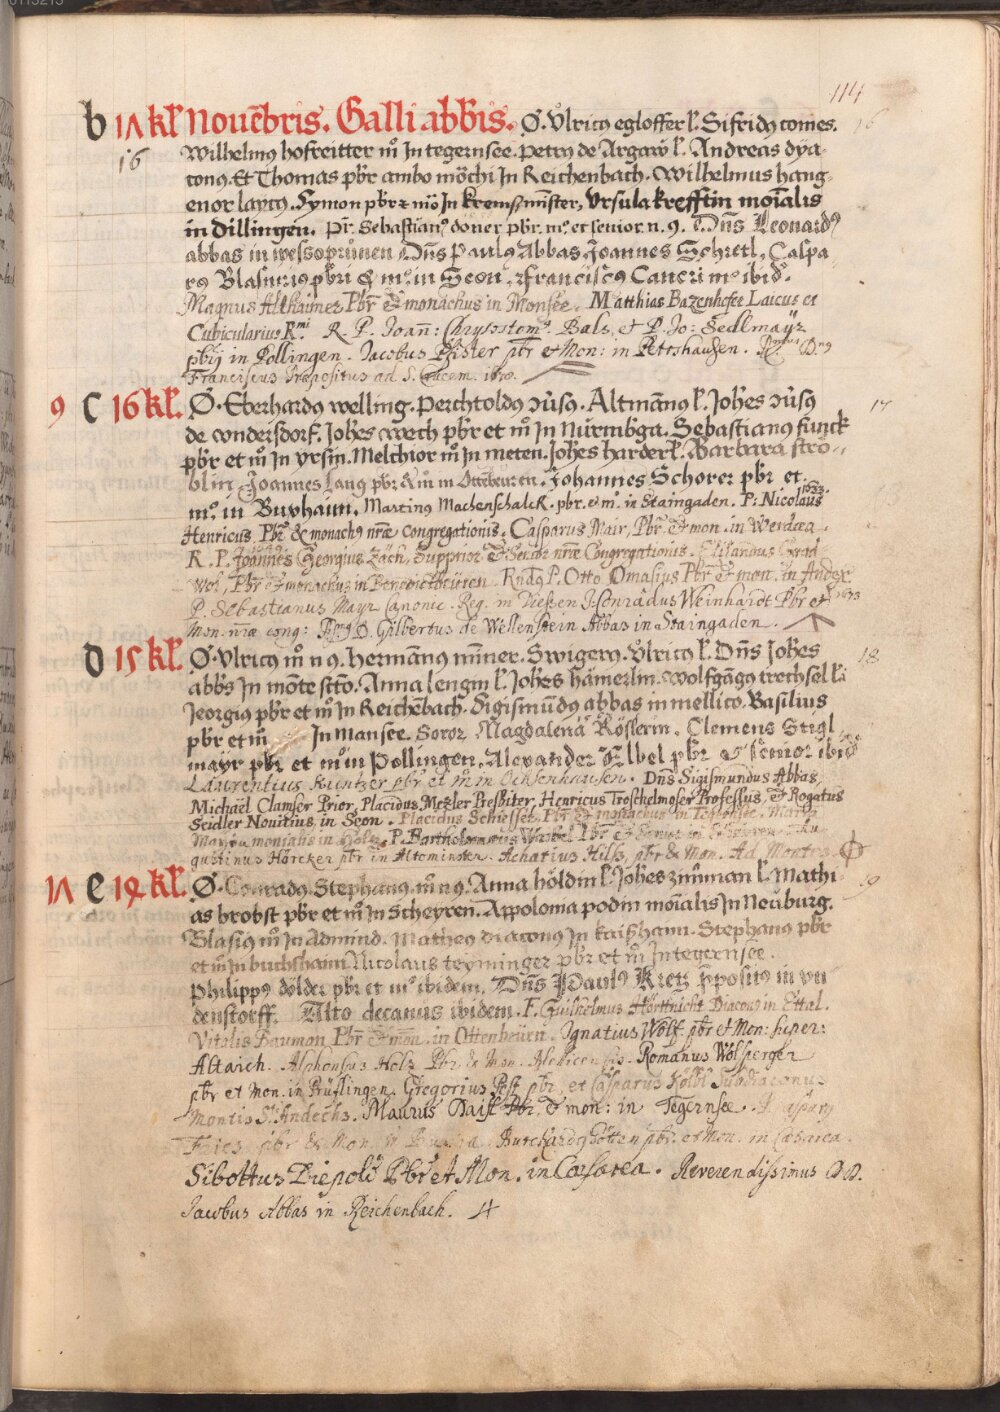 114
b 17 kl̄ Nouēbris. Galli abb̄is. Ø. Ůlricꝰ egloffer l̄. Sifridꝰ comes. 16
16 Wilhelmꝰ hofreitter m̊ In tegernsee. Petrꝰ de Argaw l̄. Andreas dya-
conꝰ. Et Thomas pb̄r ambo mōchi In Reichenbach. Wilhelmus hang-
enor laycꝰ. Symon pb̄r ⁊ mō In kremsm̄nster, Ursula krefftin moīalis
in dillingen. Pr̄. Sebastianꝰ doner pb̄r. mꝰ. et senior n. 9. Dn̄s Leonardꝰ
abbas in wessoprūnen Dn̄s Paulꝰ Abbas Joannes Schretl, Caspa
rꝰ Blasiusꝰ pb̄ri & mꝰ. in Seon. Franciscꝰ Cancri mꝰ ibid.
Magnus Althaimer Pbr̄ & monachus in Monsee. Matthias Bazenhofer Laicus et
Cubicularius R.mi R. P. Joan̄: Chrysostomꝰ. Bals, et P. Jo: Sedlmayr
pb̄ij in Pollingen. Jacobus Pfister pb̄r et Mon: in Petershausen. R.mus D.nꝰ
Franciscus Præpositus ad S. Crucem.
9 C 16 kl̄. Ø. Eberhardꝰ welling. Perchtoldꝰ ꝯūsꝰ. Altmānꝰ l̄. Joh̄es ꝯūsꝰ 17
de wndersdorf. Joh̄es wech pb̄r et m̊ In Nürmbga. Sebastianus funck
pb̄r et m̊ In yrsin. Melchior m̊ In meten. Joh̄es harder l̄. Barbara strö-
blin Joannes Lang pbr & m̄ in Ottenbeuren. Johannes Schorer pb̄r et
mꝰ. in Buxhaim. Martinꝰ Machenschalck. pbr. et mꝰ. in Staingaden. P. Nicolaus 1633
Henricus, Pbr̄ & monachꝰ nr̄æ congregationis. Casparus Mair, Pbr̄ & mon. in Werdea.
R. P. Joannes Georgius Zäch, Supprior & Senior nr̄æ Congregationis.
Pbr̄ & monachus in Benedictbeüren Rnd9 P. Otto Omasius Pbr̄ & mon. in Andex.
P. Sebastianus Mayr Canonic. Reg. in Diessen Conradus Weinhardt Pbr et 1673
Mon. nr̄æ cong: D. Gilbertus de Wellenstein Abbas in Staingaden.
D 15 kl̄. Ø. Ulricꝰ m̊ n 9. Hermānꝰ m̄ner. Swigerꝰ. Ůlricꝰ l̄. Dn̄s Joh̄es 18
abb̄s In mōte sct̄o. Anna lengin l̄. Joh̄es hāmerlin. wolfgāgꝰ trechsel l̄.
Jeorgiꝰ pb̄r et m̊ In Reichēbach. Sigismūdꝰ abbas in mellico. Basilius
pb̄r et m̊ In Mansee. Soror Magdalena Rösserin. Clemens Stigl
mayr pb̄r et mꝰ in Pollingen. Alexander Elbel pb̄r & senior ibid
Laurentius Kuntzer pbr̄ et m̊ in Ochsenhausen. Dn̄s Sigismundus Abbas,
Michael Clamser Prior, Placidus Mezler Presbiter, Henricus Troschelmoser Professus, & Rogatus
Seidler Nouitius, in Seon. Placidus Schiesset Pbr̄ & monachus in Tegernsee. Martha
monialis in P. Bartholomæus Pbr̄ &
gustinus Höreker pbr̄ in Altominster. Achatius Hilss, pb̄r & Mon. Ad Montes
17 e 14 kl̄. Ø. Conradꝰ Stephanꝰ. m̊ n 9. Anna höldin l̄. Joh̄es zin̄man l̄. Mathi- 19
as brobst pb̄r et m̊ In Scheyren. Appolonia podin moīalis In Neūburg.
Blasiꝰ m̊ In Admind. Matheꝰ diaconꝰ In kaisshaim. Stephanꝰ pb̄r
et m̊ In buchshaim Nicolaus teyninger pbr et m̊ In tegernsee.
Philippꝰ dölder pb̄r et mꝰ ibidem. Dn̄s Paulꝰ Kretz p̄positꝰ in vn
denstorff. Alto decanus ibidem. F. Guilhelmus Hörttnicht Diaconꝰ in Ettal.
Vitalis Bauman Pbr̄ & mon̄. in Ottenbeüren. Ignatius Wolf pb̄r et Mon: super:
Altaich. Alphonsus Holz Pbr. & Mon. Romanus Wolsperger
pb̄r et Mon. in Prüflingen. Gregorius pb̄r, et Casparus Kölbl Subdiaconus
Montis S. Andechs. Maurus Daisl Pbr. & mon: in Tegernsee.
pbr & Mon. Burchardꝰ pbr. et Mon. in Cæsarea.
Sibottus Diepold Pbr̄ et Mon. in Cæsarea. Reverendissimus DD.
Jacobus Abbas in Reichenbach.